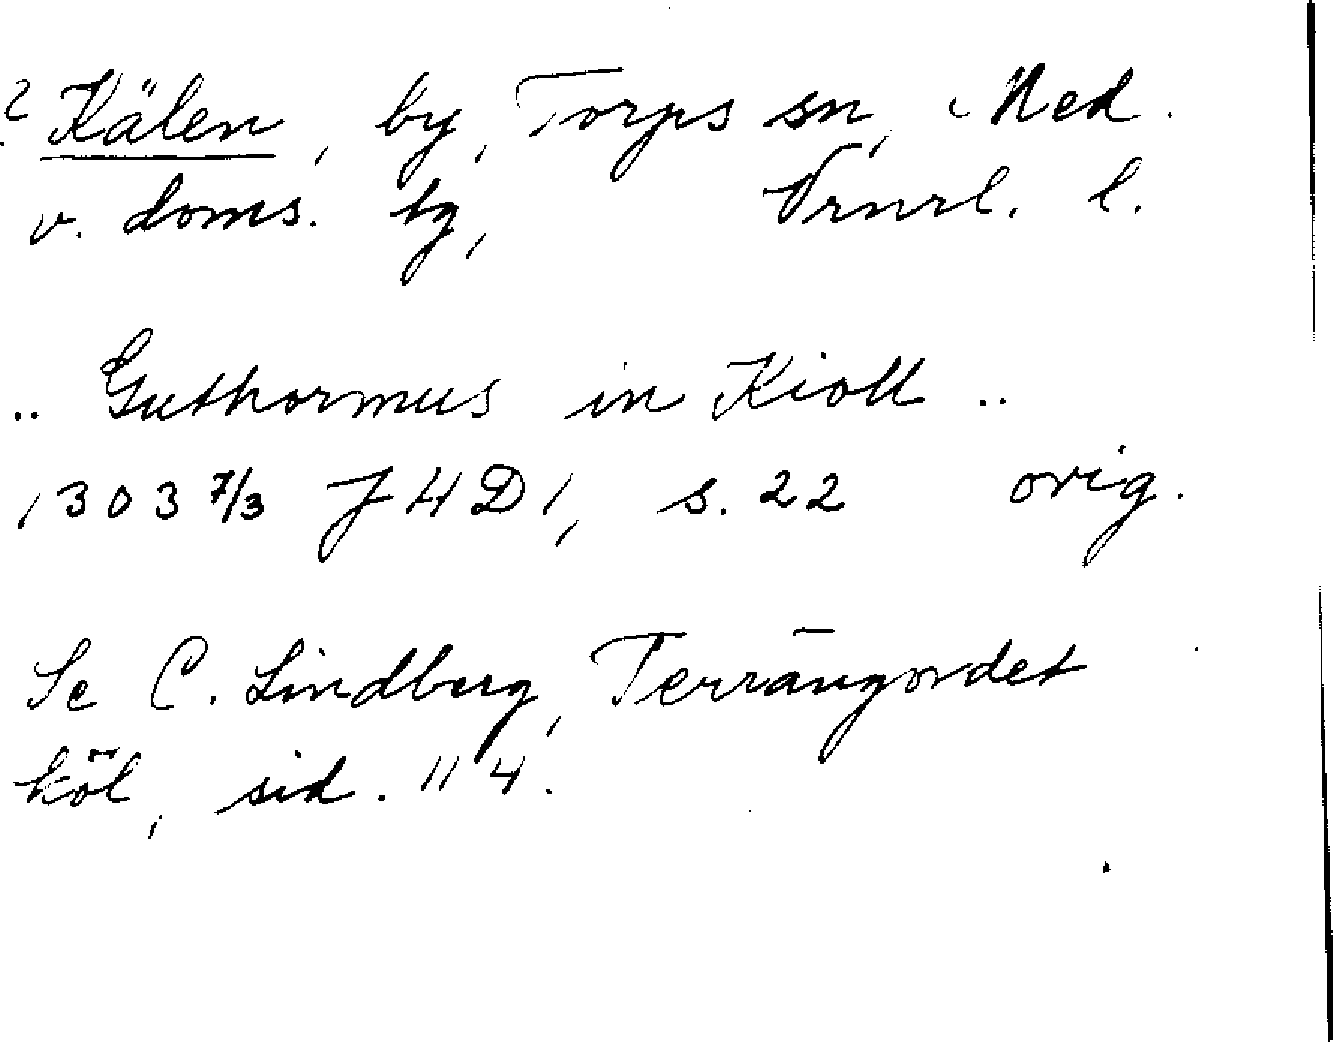 ? Kälen, by, Torps sn, Med.
v. doms. tg, Vrnrl. l.
.. Guthormus in Kioll ..
1303 7/3 J4D1, s. 22 orig.
Se C. Lindberg, Terrängordet
köl, sid. 114.